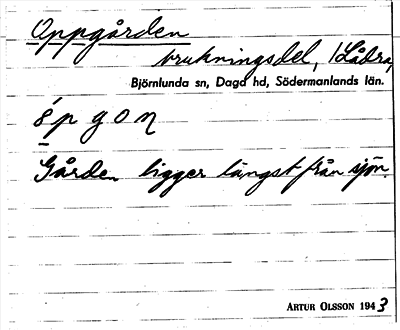 Oppgården
brukningsdel, i Lådra,
Björnlunda sn, Daga hd, Södermanlands län.
Gården ligger längst från sjön.
ARTUR OLSSON 1943